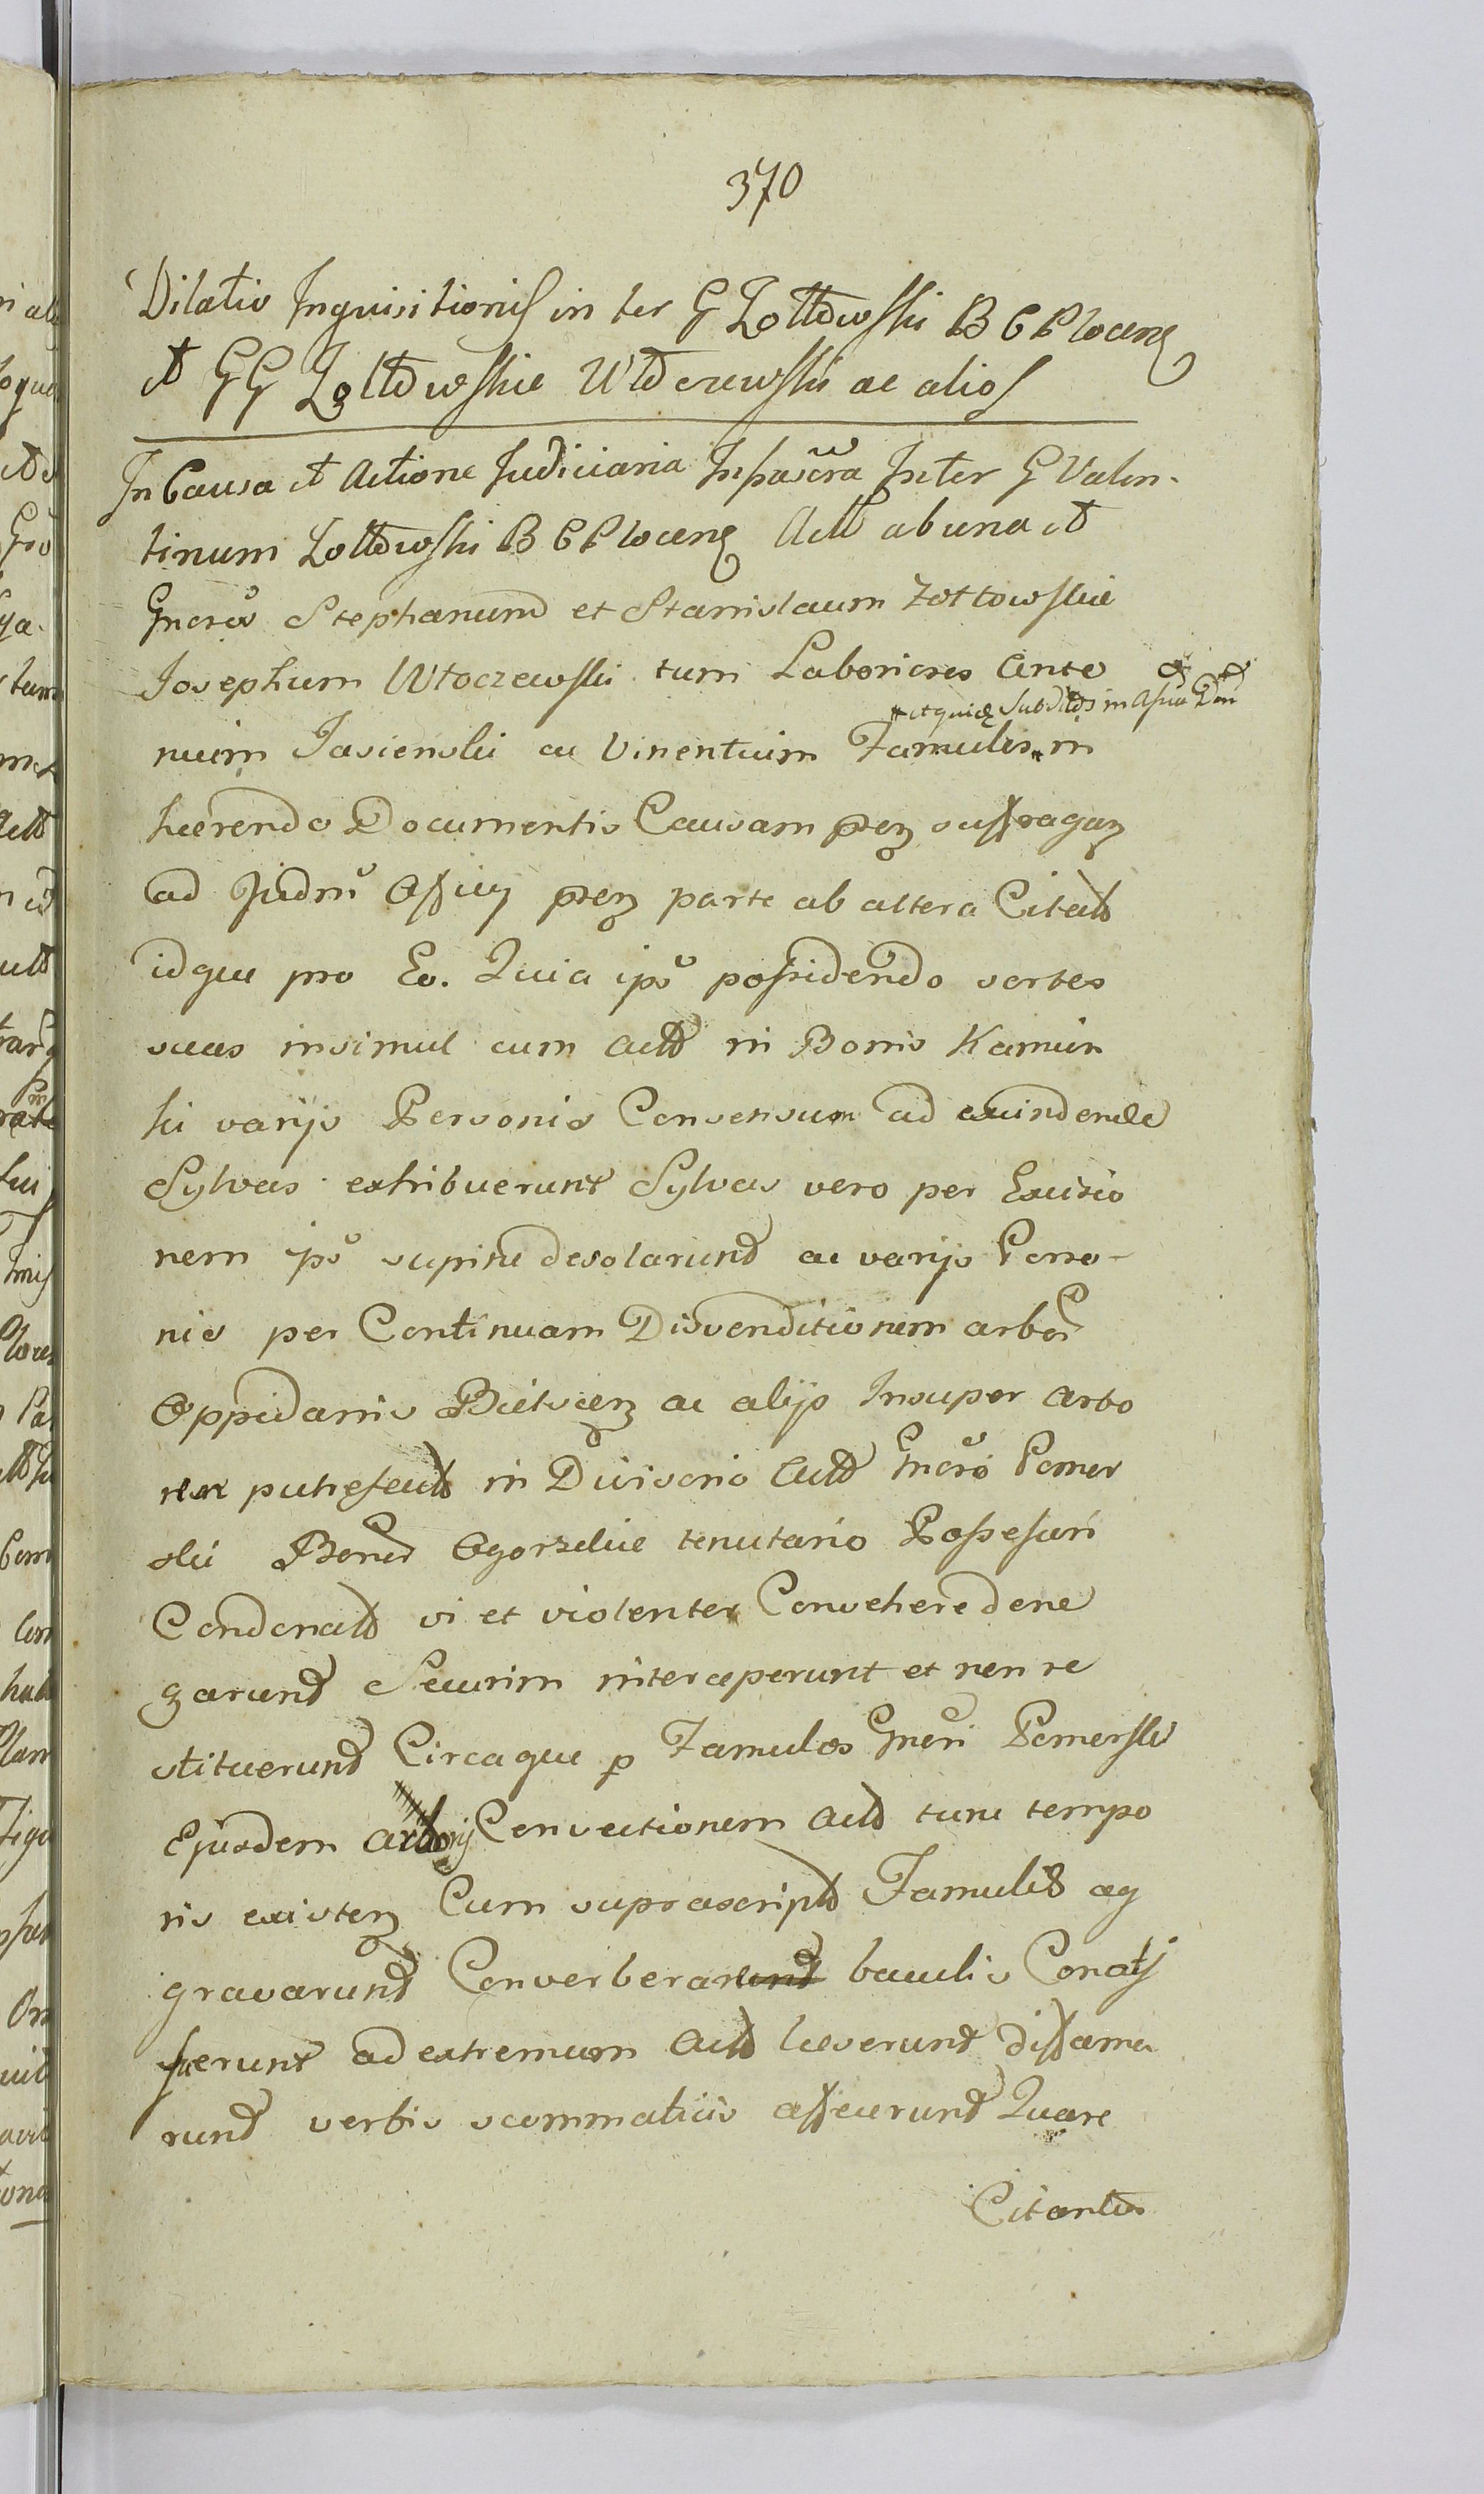 370
Dilatio Inquisitionis in ter G Zołtowski B C Plocens
et GG Zołtowskie Włoczewski ac alios
In Causa et Actione Judiciaria Infrascra Inter G Valen-
tinum Zołtowski B C Plocens Act ab una et
Gnosos Stephanum et Stanislaum Zołtowskie
Josephum Włoczewski tum Laboriosos Anto et
atquidem Subditos in Asua Gen
nium Jasienski ac Vincentium Famulos in
hærendo Documentis Causam præn suffragan
ad Judm Officij præn parte ab altera Citat
idque pro Eo. Quia ipsi possidendo sortes
suas insimul cum Act in Bonis Kamien
ski varijs Personis Consensum ad excindende
Sylvas extribuerunt Sylvas vero per Excisio
nem ipsi supine desolarunt ac varijs Perso-
nis per Continuam Disvenditionem arbor
Oppidanis Bielscen ac alijs Insuper arbo
res putrefact in Divisorio Act Gnoso Pomor
ski Bonor Ogorzelice tenutario Possessori
Condonat vi et violenter Convehere dene
garunt Securim interceperunt et non re
stituerunt Circaque p Famulos Gnosi Pomorski
Ejusdem arboris Convectionem Act tunc tempo
ris existen Cum suprascript Famulis ag
gravarunt Converberarunt baculis Conati
fuerunt ad extremum Act læserunt diffama
runt verbis scommaticis affecerunt Quare
Citantus